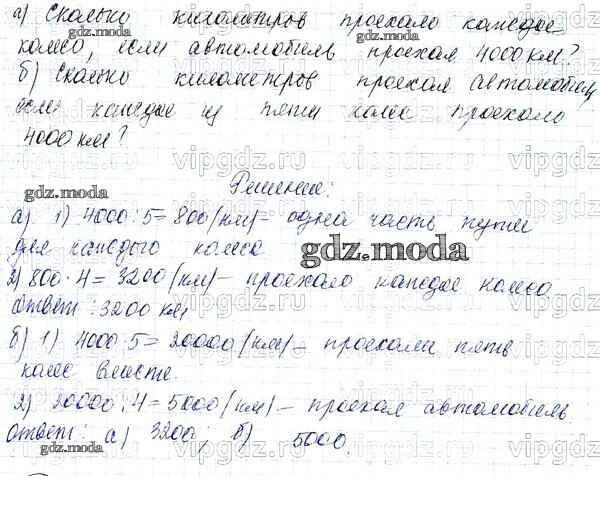 а) Сколько километров проехало каждое
колесо, если автомобиль проехал 4000 км?
б) Сколько километров проехал автомобиль,
если каждое из пяти колес проехало
4000 км?
Решение:
а) 1) 4000 : 5 = 800 (км) = одна часть пути
для каждого колеса
2) 800 · 4 = 3200 (км) – проехало каждое колесо
Ответ : 3200 км
б) 1) 4000 · 5 = 20000 (км) – проехали пять
колес вместе.
2) 20000 : 4 = 5000 (км) – проехал автомобиль.
Ответ : а) 3200; б) 5000.
gdz.moda
gdz.moda
gdz.moda
gdz.moda
gdz.moda
vipgdz.ru